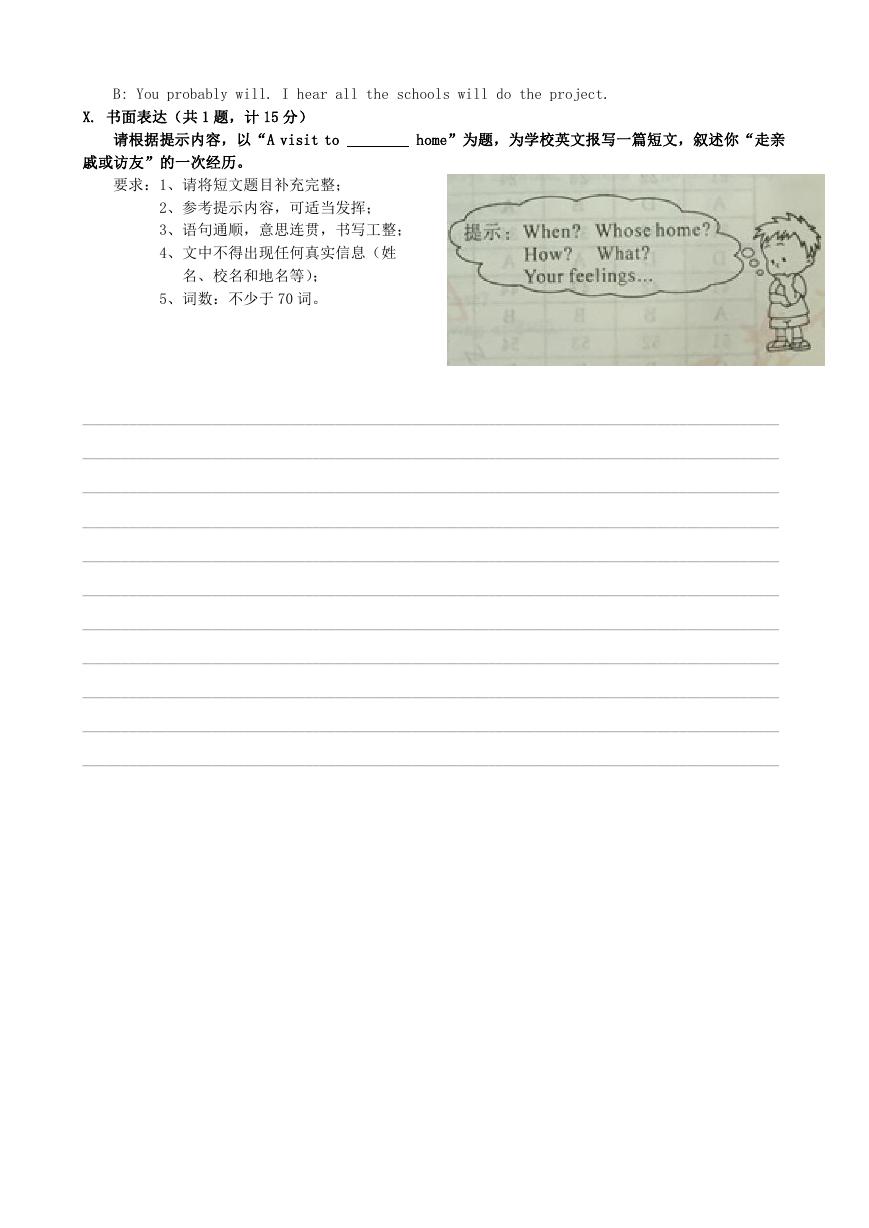 B: You probably will. I hear all the schools will do the project.
X. 书面表达（共 1 题，计 15 分）
请根据提示内容，以“A visit to ________ home”为题，为学校英文报写一篇短文，叙述你“走亲
戚或访友”的一次经历。
要求：1、请将短文题目补充完整；
2、参考提示内容，可适当发挥；
3、语句通顺，意思连贯，书写工整；
4、文中不得出现任何真实信息（姓
名、校名和地名等）；
5、词数：不少于 70 词。
提示：When? Whose home?
How? What?
Your feelings...